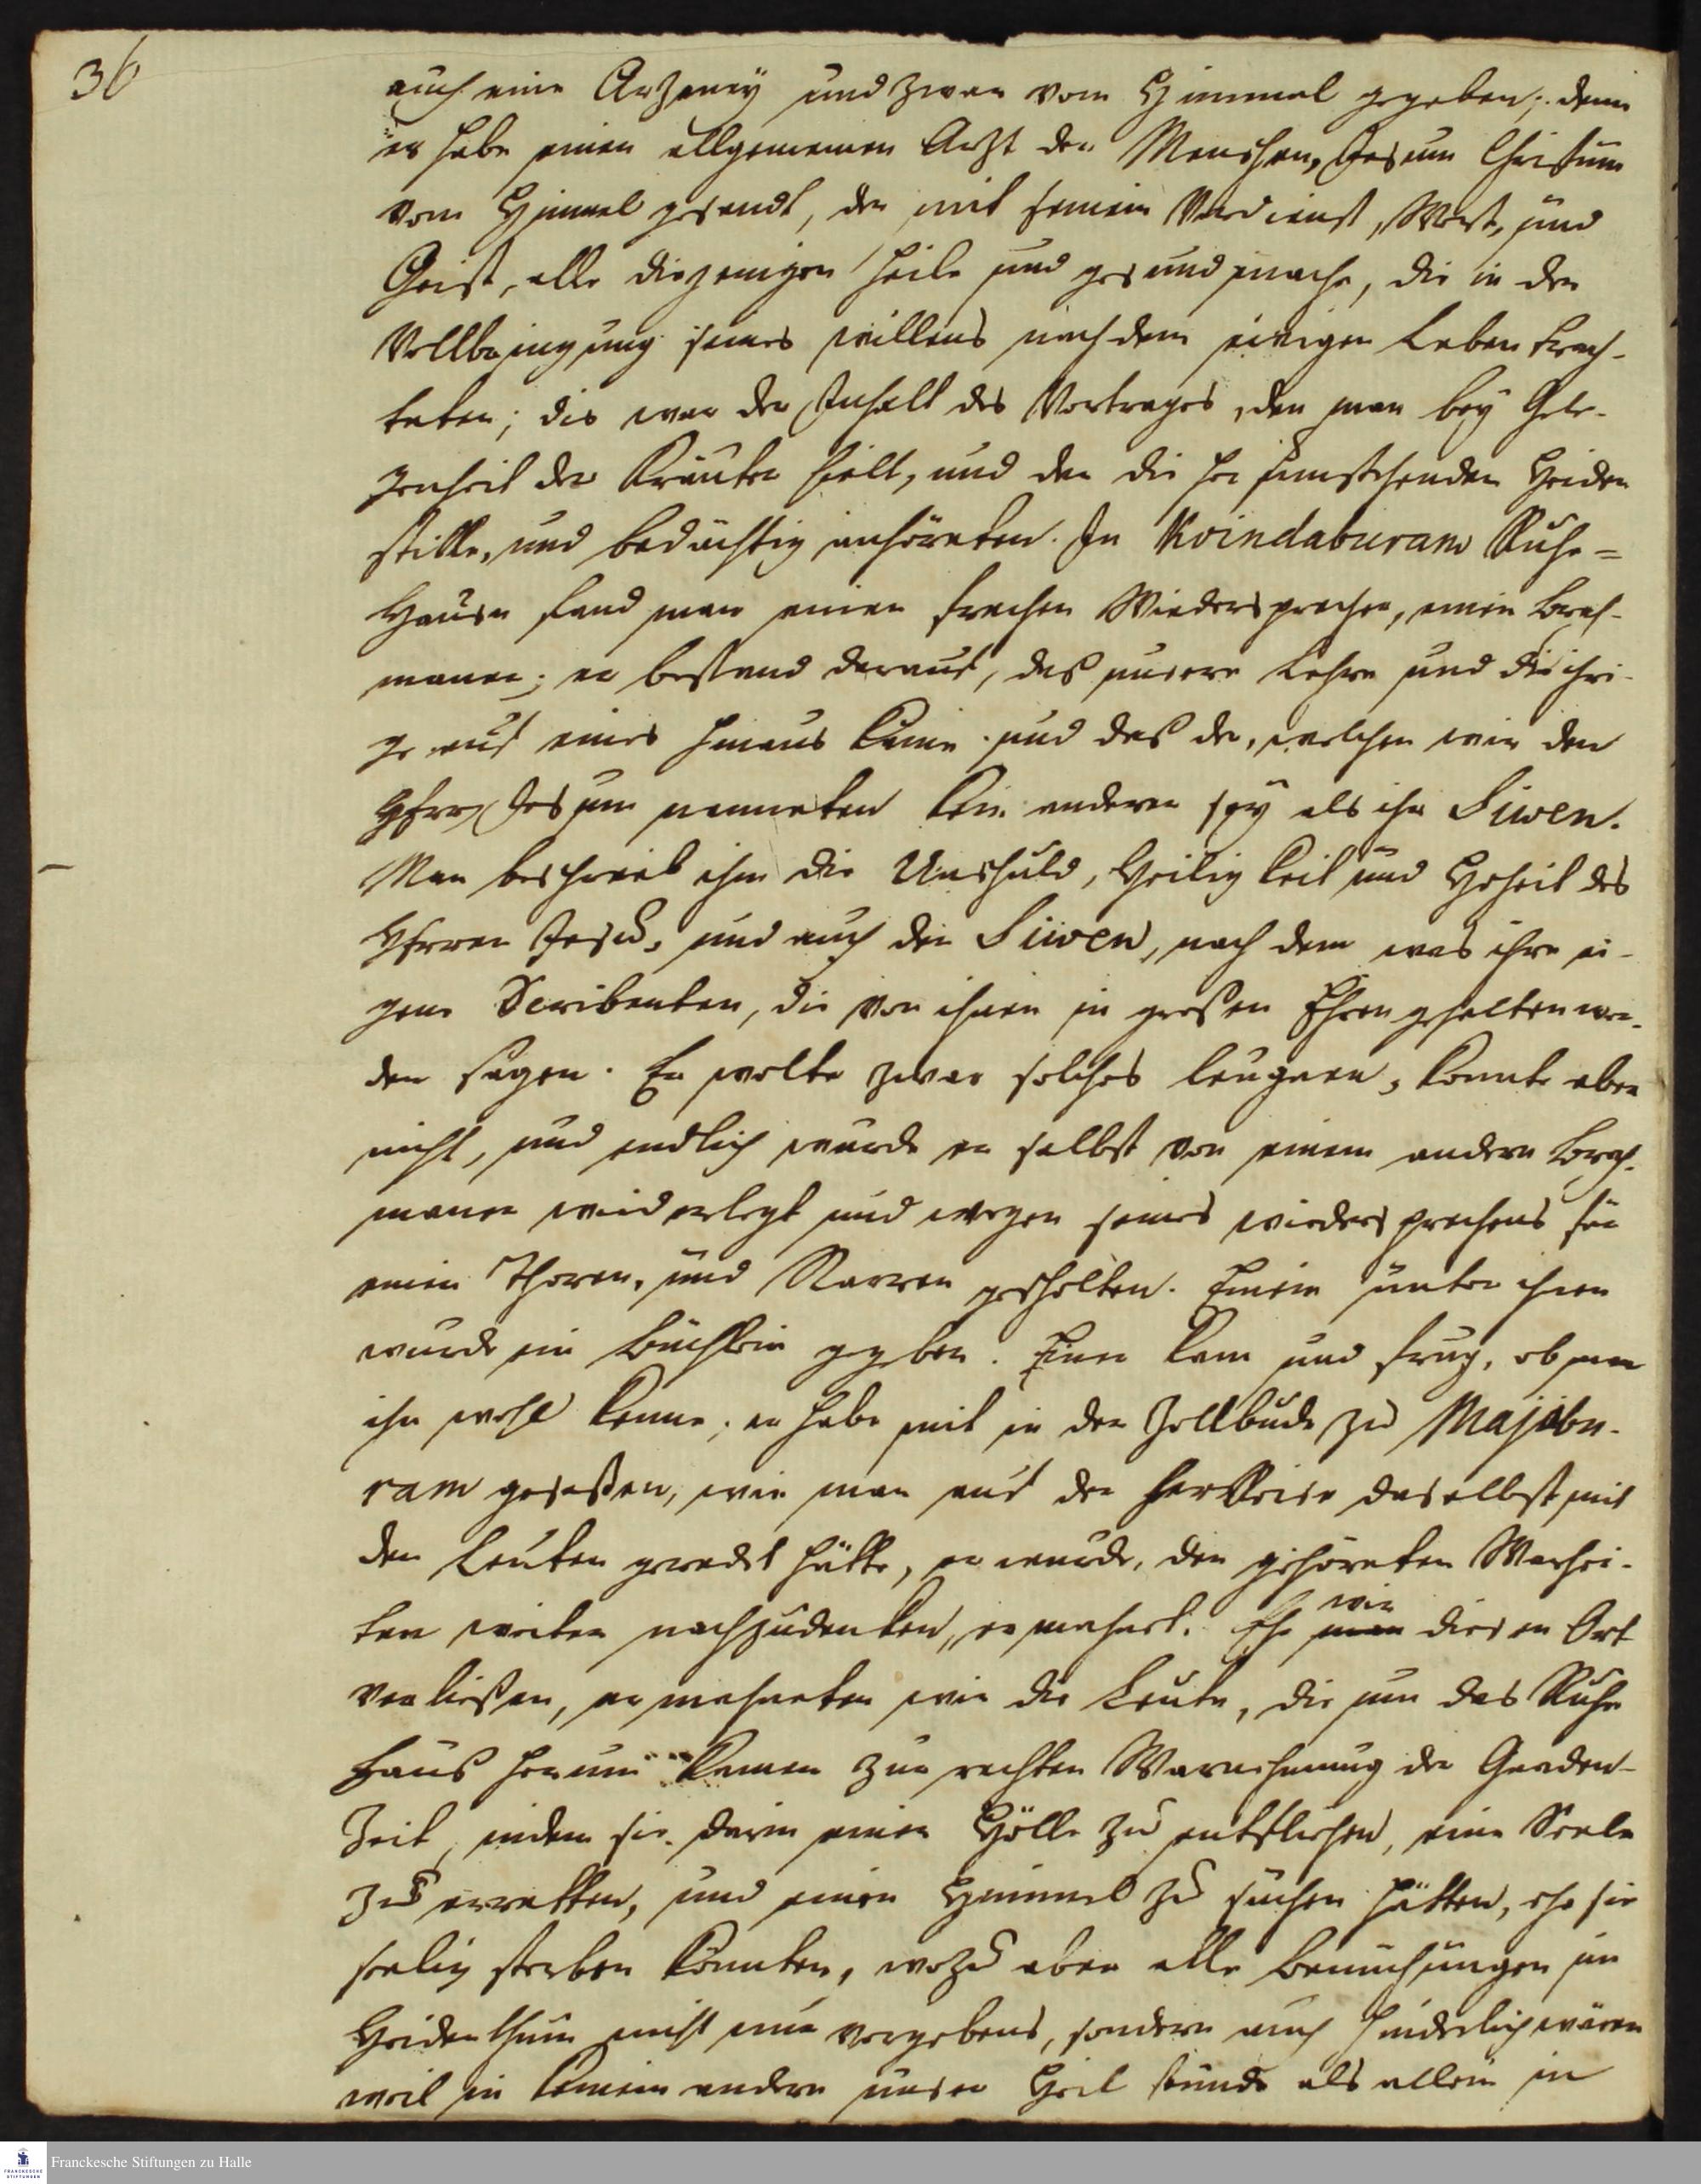 36
auch eine Arzeney und zwar vom Himmel gegeben; denn
er habe einen allgemeinen Arzt der Menschen, Jesum Christum
vom Himmel gesandt, der mit seinem Verdienst, Wort, und
Geist, alle diejenigen heile und gesund mache, die in der
Vollbringung seines willens nach dem ewigen Leben trach-
teten; dis war der Inhalt des Vortrages, den man bey Gele-
genheit der Kräuter hielt, und den die herumstehenden Heiden
stille, und bedächtig anhöreten. In Koindaburam Ruhe=
Hause fand man einen frechen Wiedersprecher, einen Brah-
maner; er bestand darauf, daß unsere Lehre und die ihri-
ge auf eines hinaus käme. und daß der, welchen wir den
Herrn Jesum nenneten kein anderer sey als ihr Siwen.
Man beschrieb ihm die Unschuld, Heiligkeit und Hoheit des
Herren Jesu, und auch den Siwen, nach dem was ihre ei-
gene Scribenten, die von ihnen in großen Ehren gehalten wer-
den sagen. Er wolte zwar solches leugnen, konnte aber
nicht, und endlich wurde er selbst von einem andern Brah-
maner wiederlegt und wegen seines wiedersprechens für
einen Thoren, und Narren gescholten. Einem unter ihnen
wurde ein Büchlein gegeben. Einer kam und frug, ob man
ihn wohl kenne; er habe mit in der Zollbude zu Majabu-
ram geseßen, wie man auf der Herreise daselbst mit
den Leuten geredet hätte, er wurde, den gehöreten Warhei-
ten weiter nachzudenken, ermahnet. Ehe man wir diesen Ort
verließen, ermahneten wir die Leute, die um das Ruhe
Haus herum kamen zur rechten Warnehmung der Gnaden-
Zeit, indem sie darin einer Hölle zu entfliehen, eine Seele
zu erretten, und einen Himmel zu suchen hätten, ehe sie
seelig sterben könnten, wozu aber alle Bemühungen im
Heidenthum nicht nur vergebens, sondern auch hinderlich wären
weil in keinem andern unser Heil stünde als allein in
Franckesche Stiftungen zu Halle